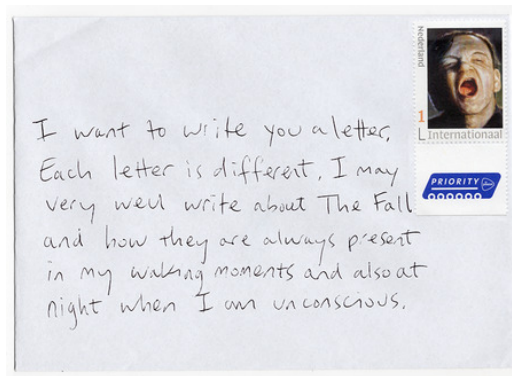 Nederland
1
Internationaal
PRIORITY
I want to write you a letter.
Each letter is different, I may
very well write about The Fall
and how they are always present
in my waking moments and also at
night when I am unconscious.